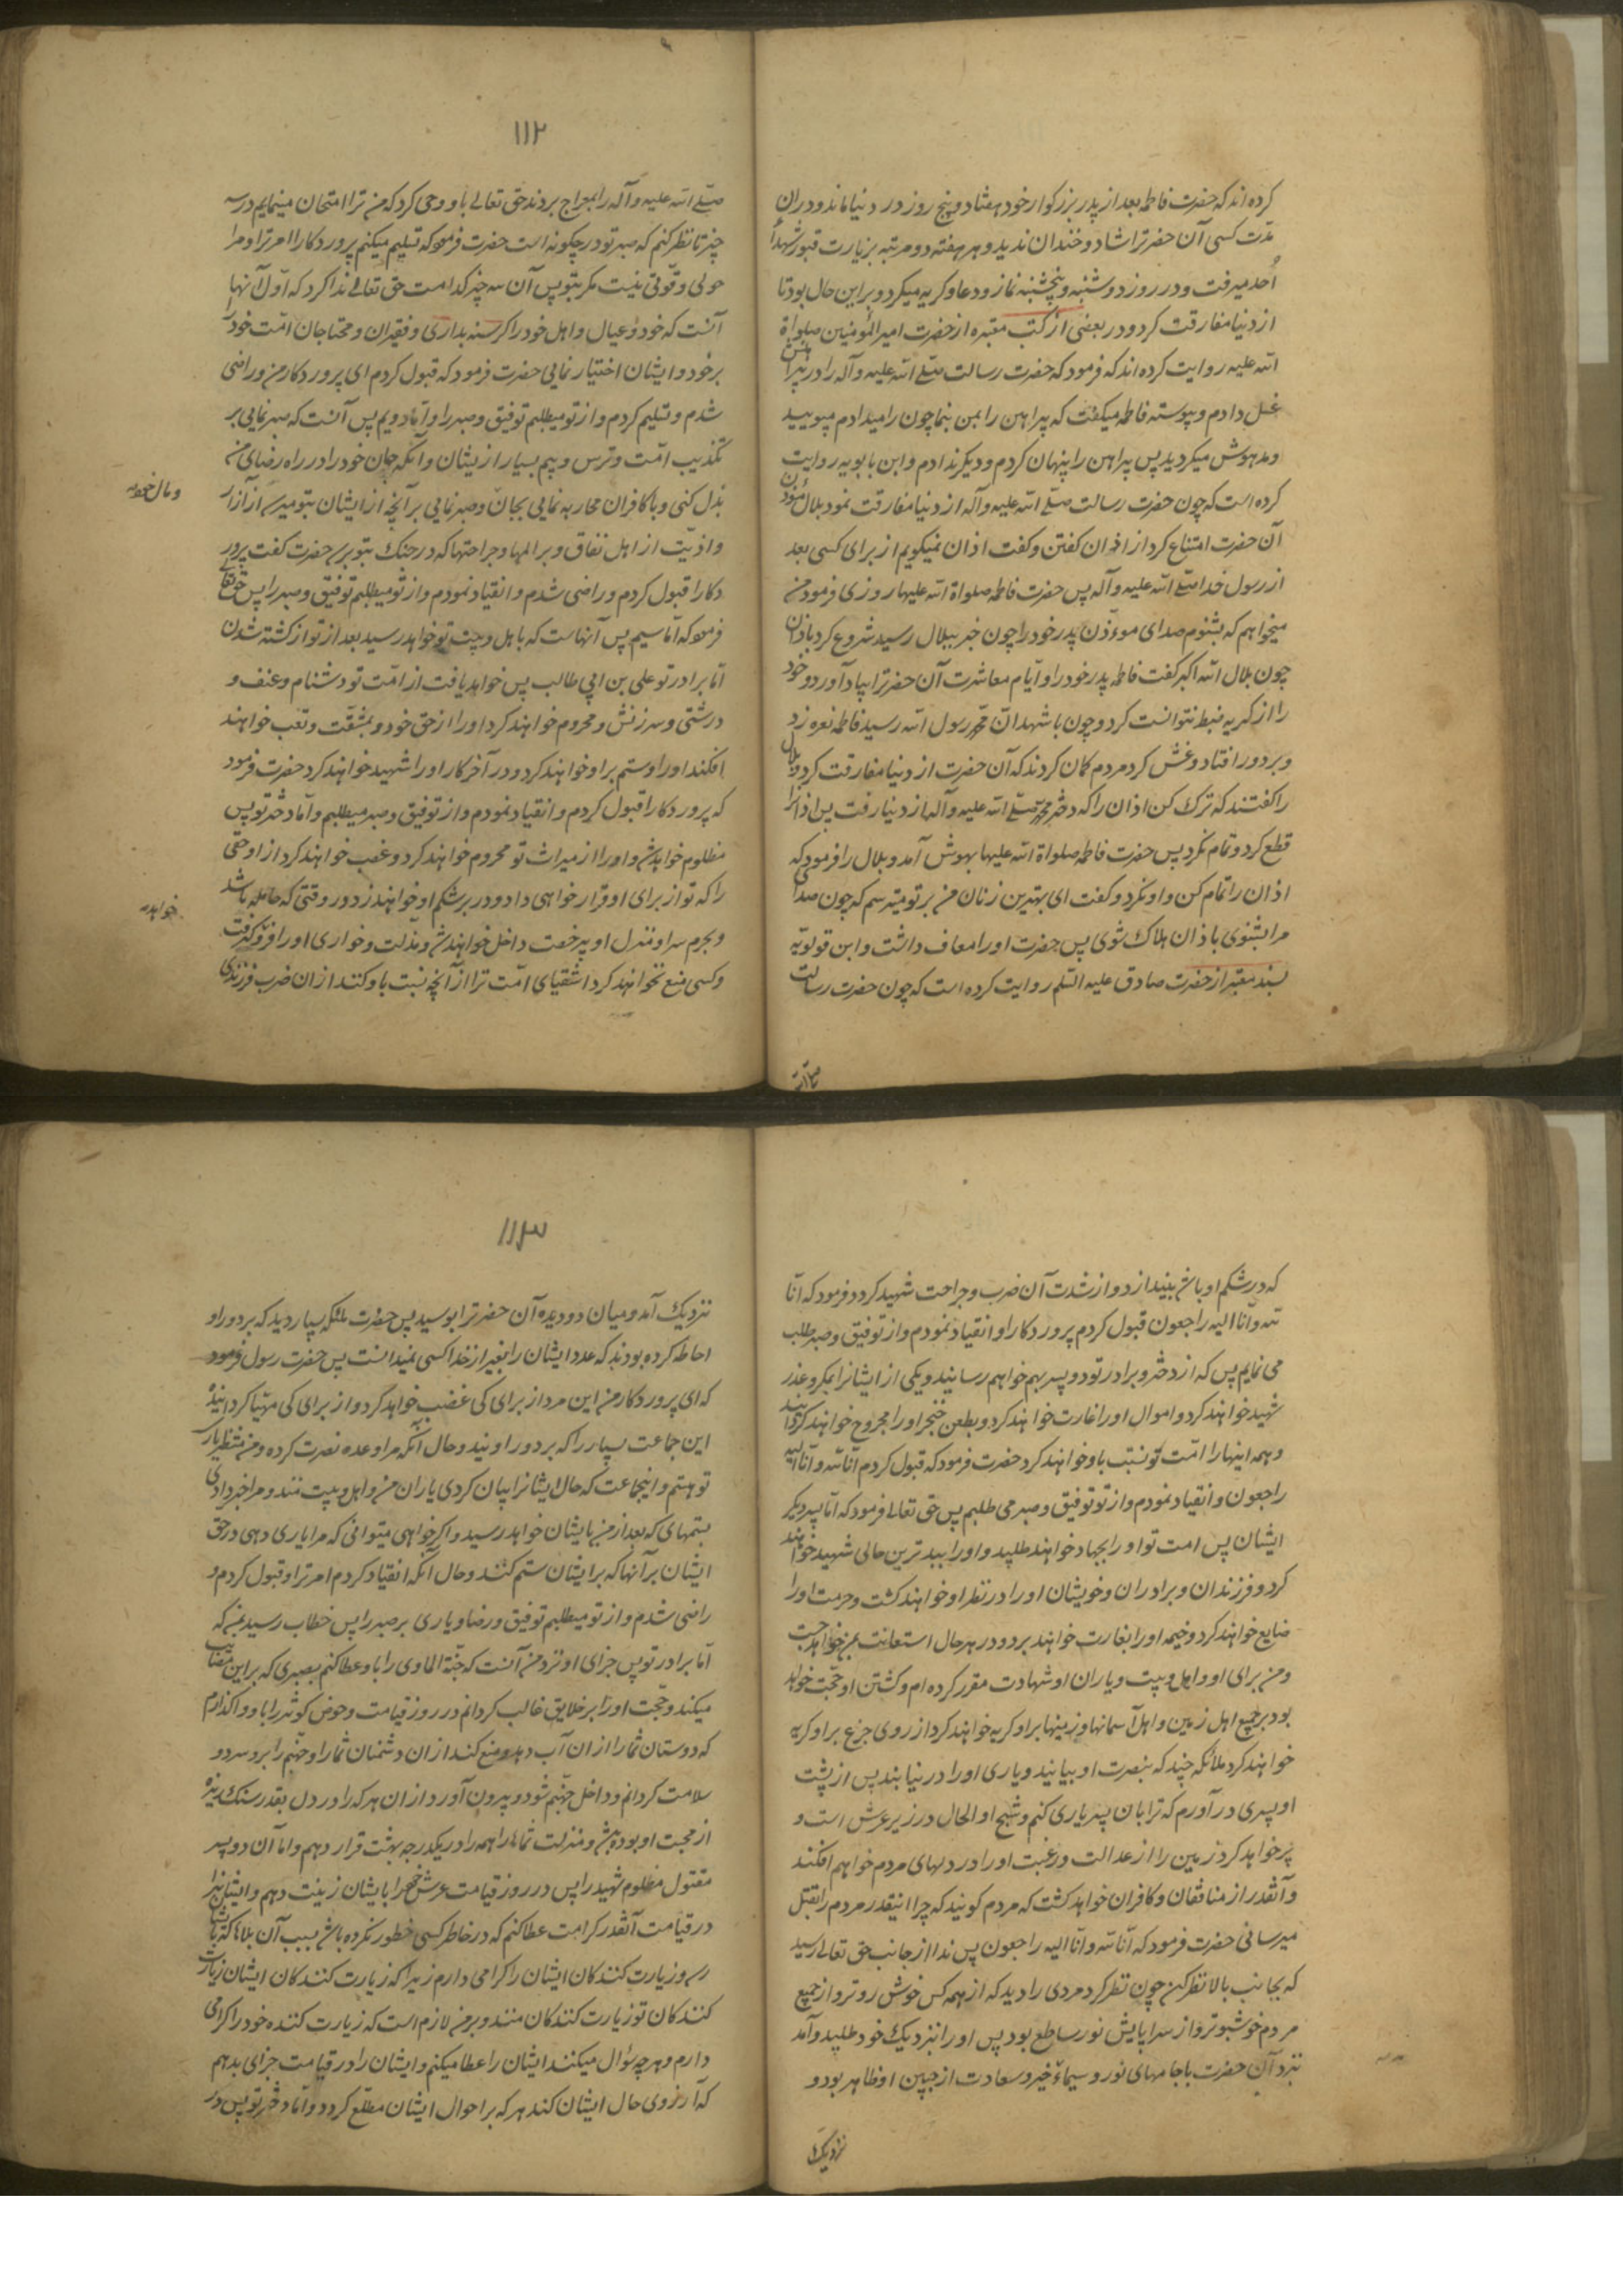 کرده‌اند که حضرت فاطمه بعد از پدر بزرکوار خود هفتاد و پنج روز در دنیا ماند و در ان
مدّت کسی آن حضرترا شاد و خندان ندید و هر هفته دو مرتبه بزیارت قبور شهداء
اُحد میرفت و در روز دوشنبه و پنجشنبه نماز و دعا و کریه میکرد و بر این حال بود تا
از دنیا مفارقت کرد و در بعضی از کتب معتبره از حضرت امیر المؤمنین صلواة
الله علیه روایت کرده‌اند که فرمود که حضرت رسالت صلّے الله علیه و آله را در پیراهنش
غسل دادم و پیوسته فاطمه میکفت که پیراهن را بمن بنما چون را میدادم میبویید
و مدهوش میکردید پس پیراهن را پنهان کردم و دیکر ندادم و ابن بابویه روایت
کرده است که چون حضرت رسالت صلّے الله علیه و آله از دنیا مفارقت نمود بلال مؤذن
آن حضرت امتناع کرد از اذان کفتن و کفت اذان نمیکویم از برای کسی بعد
از رسول خدا صلّے الله علیه و آله پس حضرت فاطمه صلواة الله علیها روزی فرمود من
میخواهم که بشنوم صدای موءذّن پدر خود را چون خبر ببلال رسید شروع کرد باذان
چون بلال الله اکبر کفت فاطمه پدر خود را و ایّام معاشرت آن حضرترا بیاد آورد و خود
را از کریه ضبط نتوانست کرد و چون با شهد انّ محمّد رسول الله رسید فاطمه نعره زد
و بر دور افتاد و غش کرد مردم کمان کردند که آن حضرت از دنیا مفارقت کرد و بلال
را کفتند که ترک کن اذان را که دختر محمّد صلّے الله علیه و آله از دنیا رفت پس اذانرا
قطع کرد و تمام نکرد پس حضرت فاطمه صلواة الله علیها بهوش آمد و بلال را فرمود که
اذان را تمام کن و او نکرد و کفت ای بهترین زنان من بر تو میترسم که چون صدای
مرا بشنوی باذان هلاک شوی پس حضرت او را معاف داشت و ابن قولویه
بسند معتبر از حضرت صادق علیه السّلم روایت کرده است که چون حضرت رسالت
صلّے الله
۱۱۲
صلّے الله علیه و آله را بمعراج بردند حق تعالے باو وحی کرد که من ترا امتحان مینمایم در سه
چیز تا نظر کنم که صبر تو در چکونه است حضرت فرمود که تسلیم میکنم پرور دکارا امر ترا و مرا
حولی و قوّتی نیست مکر بتو پس آن سه چیز کدامست حق تعالے ندا کرد که اوّل آنها
آنست که خود و عیال و اهل خود را کرسنه بداری و فقیران و محتاجان امّت خود را
بر خود و ایشان اختیار نمایی حضرت فرمود که قبول کردم ای پروردکار من و راضی
شدم و تسلیم کردم و از تو میطلبم توفیق و صبر را و اما دویم پس آنست که صبر نمایی بر
تکذیب امّت و ترس و بیم بسیار از یشان و آنکه جان خود را در راه رضای من
و مال خود
بذل کنی و با کافران محاربه نمایی بجان و صبر نمایی بر آنچه از ایشان بتو میرسد از آزار
و اذیّت از اهل نفاق و بر المها و جراحتها که در جنک بتو برسد حضرت کفت پرور
دکارا قبول کردم و راضی شدم و انقیاد نمودم و از تو میطلبم توفیق و صبر را پس حق تعالے
فرمود که امّا سیم پس آنهاست که باهل و بیت تو خواهد رسید بعد از تو از کشته شدن
امّا برادر تو علی بن ابی طالب پس خواهد یافت از امّت تو دشنام و عنف و
درشتی و سرزنش و محروم خواهند کرد او را از حق خود و بمشقّت و تعب خواهند
افکند او را و ستم بر او خواهند کرد و در آخر کار او را شهید خواهند کرد حضرت فرمود
که پروردکارا قبول کردم و انقیاد نمودم و از توفیق و صبر میطلبم و اما دختر تو پس
مظلوم خواهد شد و او را از میراث تو محروم خواهند کرد و غصب خواهند کرد از او حقّی
را که تو از برای او قرار خواهی داد و در بر شکم او خواهند زد در وقتی که حامله باشد
خواهد
و بحرم سرا و منزل او بیرخصت داخل خواهند شد و مذلت و خواری او را فرو کرفت
و کسی منع نخواهند کرد اشقیای امّت ترا از آنچه نسبت باو کنند از ان ضرب فرزندی
که در شکم او باشد بیندازد و از شدت آن ضرب و جراحت شهید کردد فرمود که انّا
لله و انّا الیه راجعون قبول کردم پروردکارا و انقیاد نمودم و از توفیق و صبر طلب
می نمایم پس که از دختر و برادر تو دو پسر بهم خواهم رسانید و یکی از ایشانرا بمکر و عذر
شهید خواهند کرد و اموال او را غارت خواهند کرد و بطعن خنجر او را مجروح خواهند کردانید
و همه اینها را امّت تو نسبت باو خواهند کرد حضرت فرمود که قبول کردم انّا لله و انّا الیه
راجعون و انقیاد نمودم و از تو توفیق و صبر می طلبم پس حق تعالے فرمود که امّا پسر دیکر
ایشان پس امت تو او را بجهاد خواهند طلبید و او را ببدترین حالی شهید خواهند
کرد و فرزندان و برادران و خویشان او را در نظر او خواهند کشت و حرمت او را
ضایع خواهند کرد و خیمه او را بغارت خواهند برد و در هر حال استعانت بمن خواهد جست
و من برای او و اهل و بیت و یاران او شهادت مقرر کرده‌ام و کشتن او حجّت خواهد
بود بر جمیع اهل زمین و اهل آسمانها و زمینها بر او کریه خواهند کرد از روی جزع بر او کریه
خواهند کرد ملائکه چند که بنصرت او بیایند و یاری او را در نیابند پس از پشت
او پسری در آورم که ترا بان پسر یاری کنم و شبح او الحال در زیر عرش است و
پر خواهد کرد زمین را از عدالت و رغبت او را در دلهای مردم خواهم افکند
و آنقدر از منافقان و کافران خواهد کشت که مردم کویند که چرا اینقدر مردم را بقتل
میرسانی حضرت فرمود که انّا لله و انّا الیه راجعون پس ندا از جانب حق تعالے رسید
که بجانب بالا نظر کن چون نظر کرد مردی را دید که از همه کس خوش روتر و از جمیع
مردم خوشبوتر و از سراپایش نور ساطع بود پس او را بنزدیک خود طلبید و آمد
نزد آن حضرت با جامهای نور و سیماءخیر و سعادت از جبین او ظاهر بود و
۱۱۳
نزدیک آمد و میان دو دیده آن حضرترا بوسید پس حضرت ملئکه بسیار دید که بر دور او
احاطه کرده بودند که عدد ایشان را بغیر از خدا کسی نمیدانست پس حضرت رسول فرمود
که ای پروردکار من این مرد از برای کی غضب خواهد کرد و از برای کی مهیّا کردانیدهٔ
این جماعت بسیار را که بر دور اویند و حال آنکه مرا وعده نصرت کرده و من منتظر یاری
تو هستم و اینجماعت که حال ایشانرا بیان کردی یاران من و اهل و بیت منند و مرا خبر دادی
بستمهای که بعد از من بایشان خواهد رسید و اکر خواهی میتوانی که مرا یاری دهی در حق
ایشان بر آنها که بر ایشان ستم کنند و حال آنکه انقیاد کردم امر ترا و قبول کردم و
راضی شدم و از تو میطلبم توفیق و رضا و یاری بر صبر را پس خطاب رسید بمن که
امّا برادر تو پس جزای او نزد من آنست که جنّة الماوی را باو عطا کنم بصبری که بر این مصایب
میکند و حجّت او را بر خلایق غالب کردانم در روز قیامت و حوض کوثر را باو واکذارم
که دوستان شما را از ان آب دهد و منع کند از ان دشمنان شما را و جهنّم را بر و سرد و
سلامت کردانم و داخل جهنّم شود و بیرون آورد از ان هر که را در دل بقدر سنک ریزه
از محبت او بوده باشد و منزلت شما را همه را در یکدرجه بهشت قرار دهم و اما آن دو پسر
مقتول مظلوم شهید را پس در روز قیامت عرش خود را بایشان زینت دهم و ایشانرا
در قیامت آنقدر کرامت عطا کنم که در خاطر کسی خطور نکرده باشد بسبب آن بلاها که بایشان
رسد و زیارت کنندکان ایشان را کرامی دارم زیرا که زیارت کنندکان ایشان زیارت
کنندکان تو زیارت کنندکان منند و بر من لازم است که زیارت کننده خود را کرامی
دارم و هر چه سؤال میکنند ایشان را عطا میکنم و ایشان را در قیامت جزای بدهم
که آرزوی حال ایشان کند هر که بر احوال ایشان مطّلع کردد و امّا دختر تو پس در